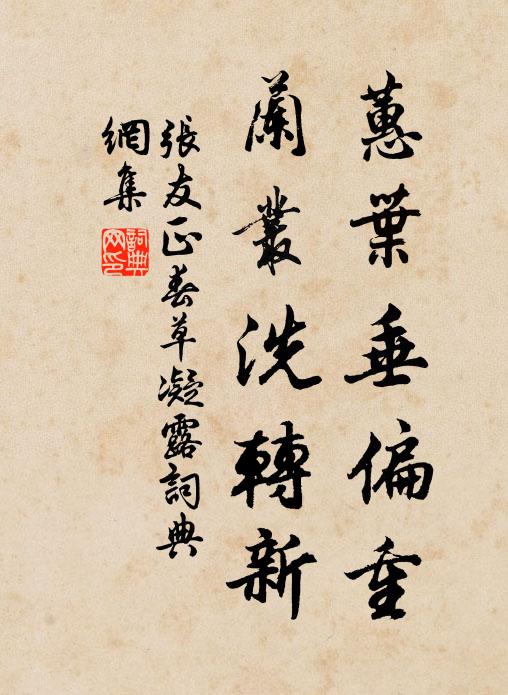 蕙葉垂偏重
蘭叢洗轉新
張友正春草凝露詞典
網集
詞典網印